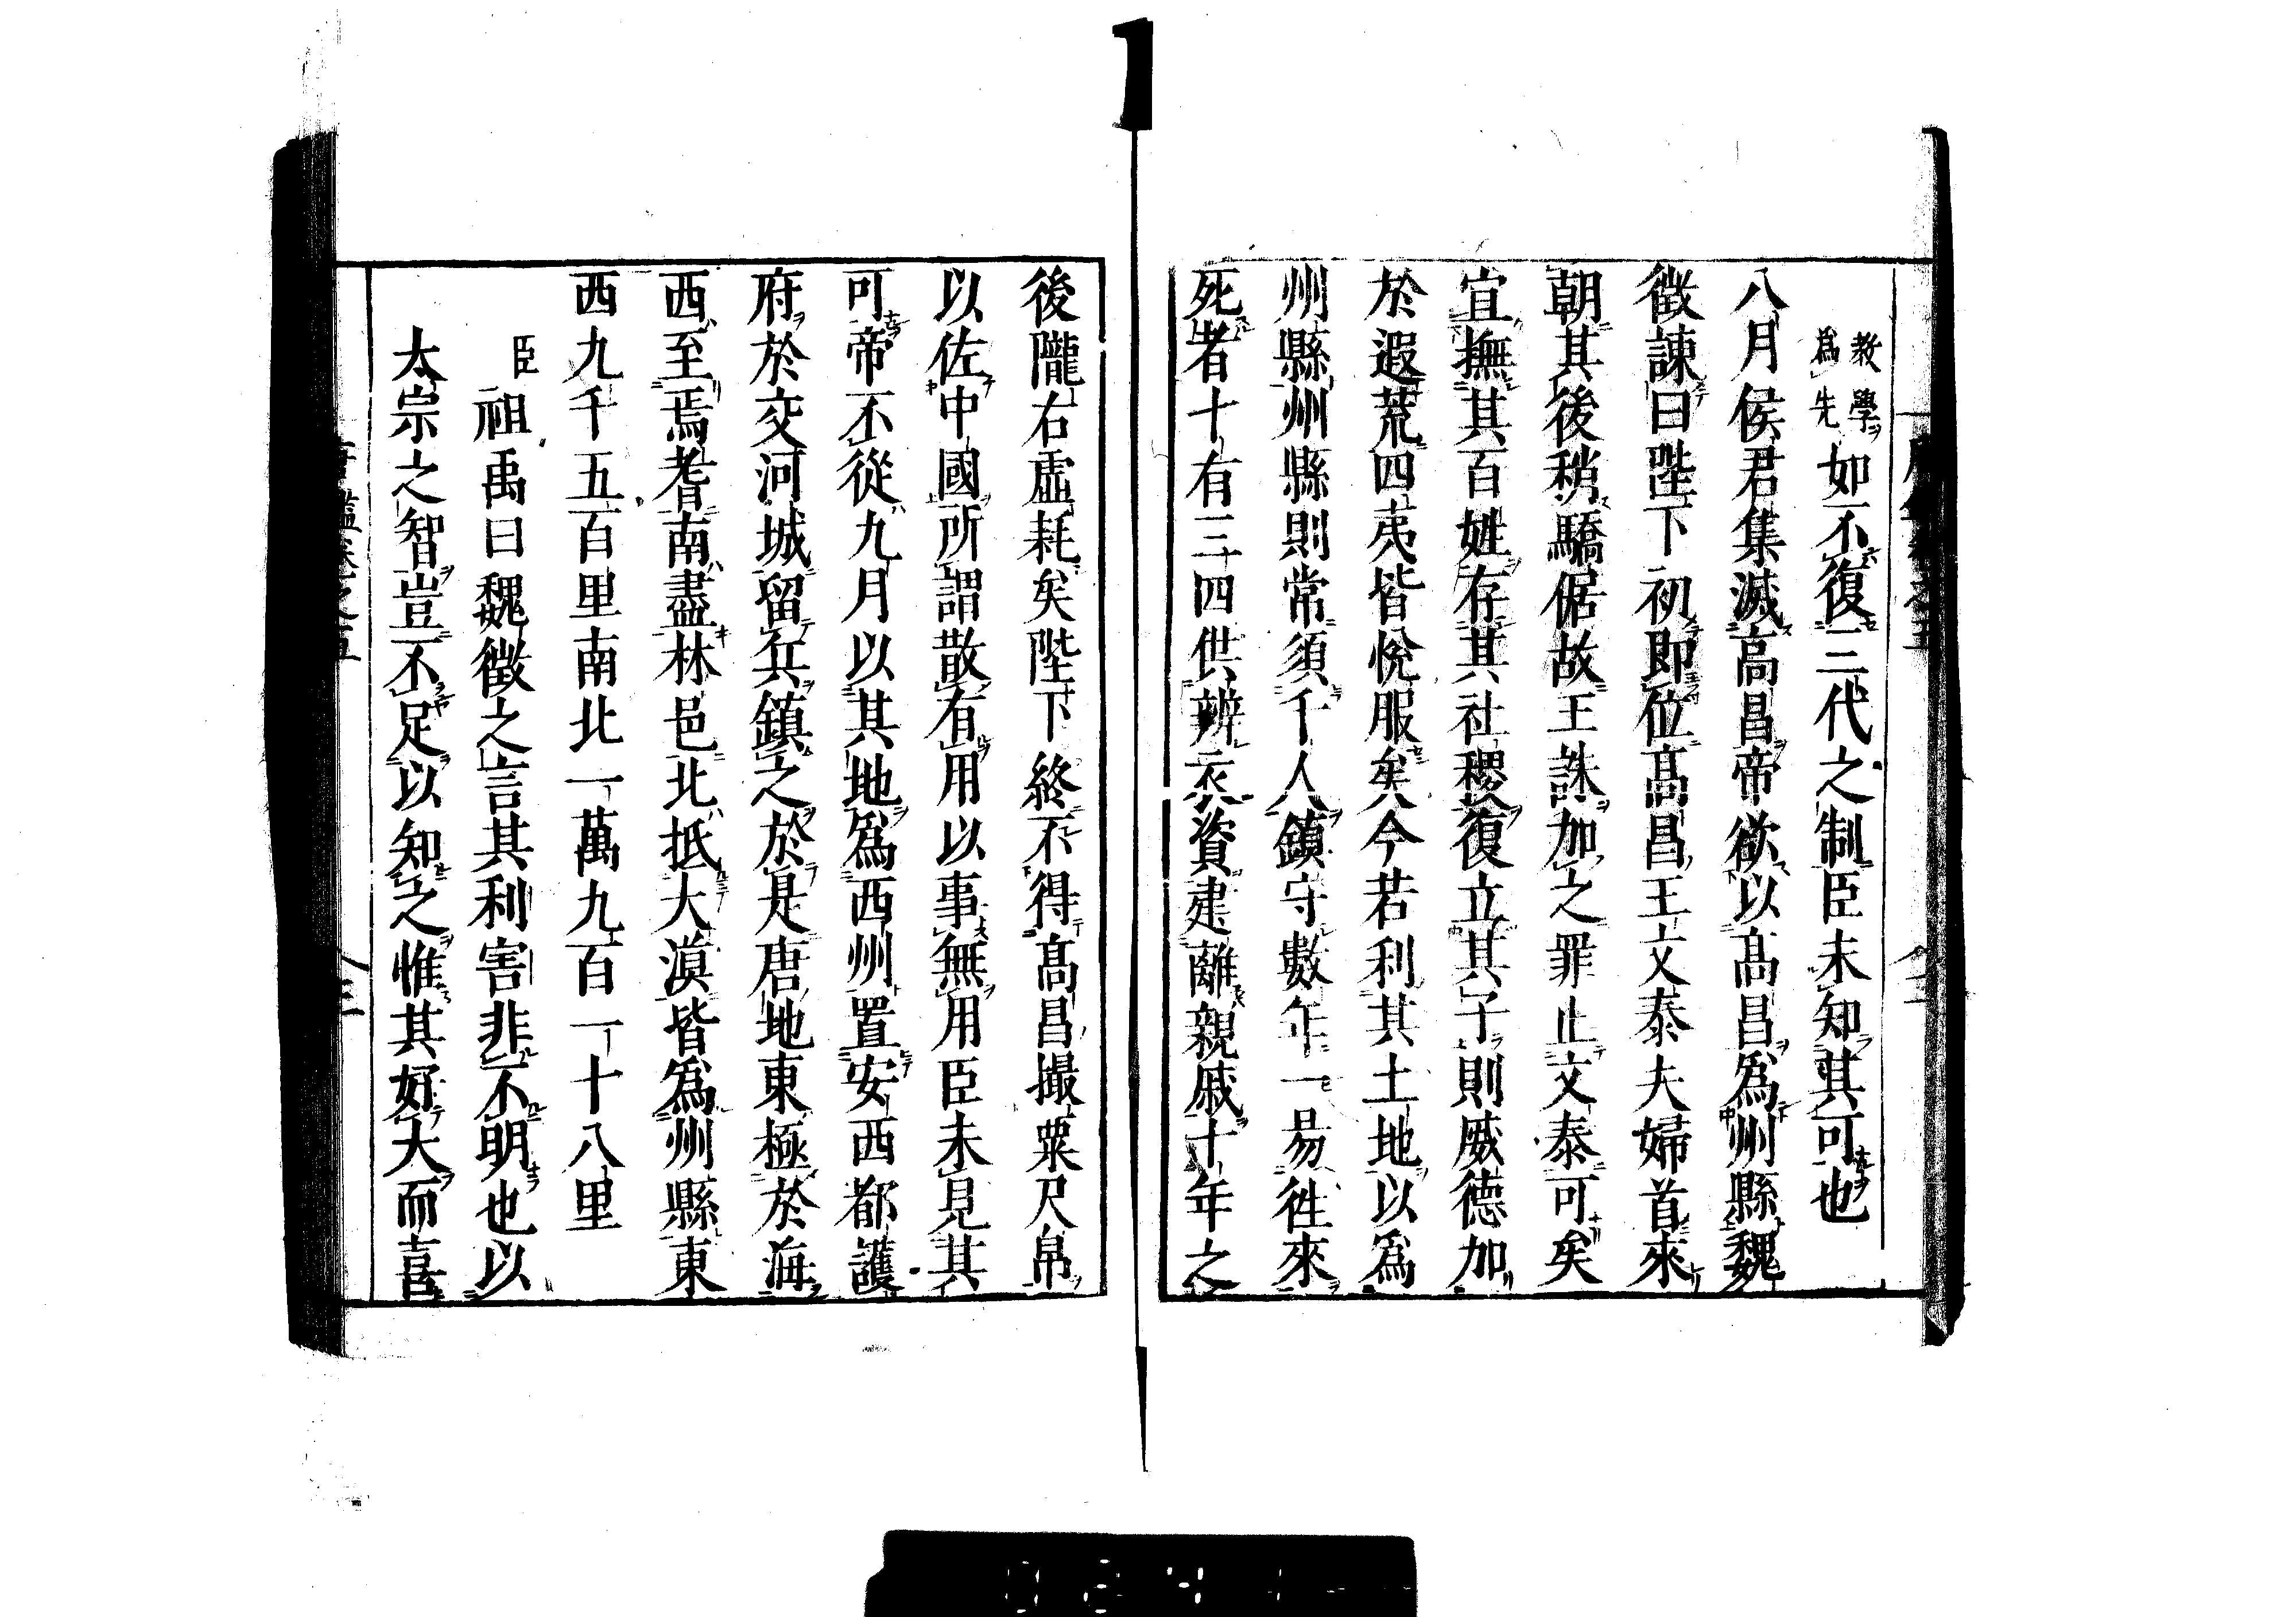 教學
爲先
如不復三代之制臣未知其可也
八月侯君集滅高昌帝欲以高昌爲州縣魏
徵諫曰陛下初即位高昌王文泰夫婦首來
朝其後稍驕倨故王誅加之罪止文泰可矣
宜撫其百姓存其社稷復立其子則威德加
於遐荒四夷皆悅服矣今若利其土地以爲
州縣州縣則常須千人鎮守數年一易徃來
死者十有三四供辨衣資違離親戚十年之
後隴右虛耗矣陛下終不得高昌撮粟尺帛
以佐中國所謂散有用以事無用臣未見其
可帝不從九月以其地爲西州置安西都護
府於交河城留兵鎮之於是唐地東極於海
西至焉耆南盡林邑北抵大漠皆爲州縣東
西九千五百里南北一萬九百一十八里
臣祖禹曰魏徵之言其利害非不明也以
太宗之智豈不足以知之惟其好大而喜